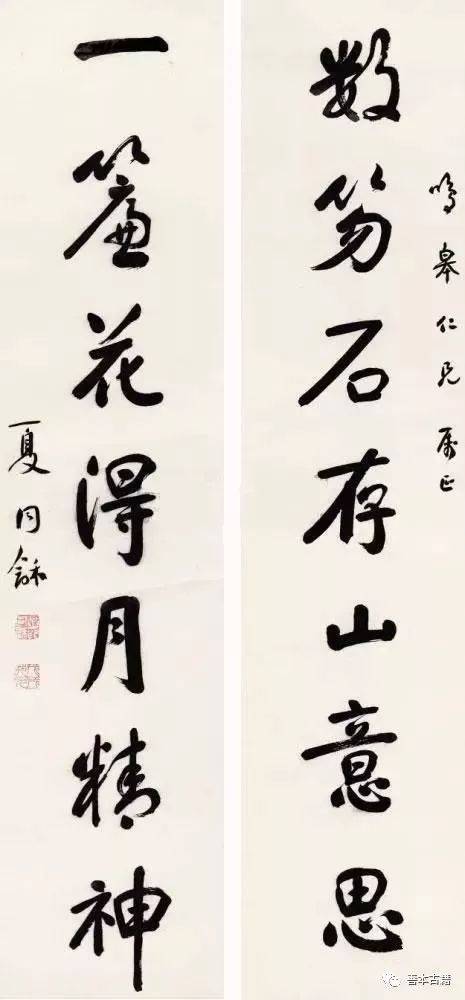 鳴皋仁兄属正
数笏石存山意思
一簾花得月精神
夏同龢
善本古籍